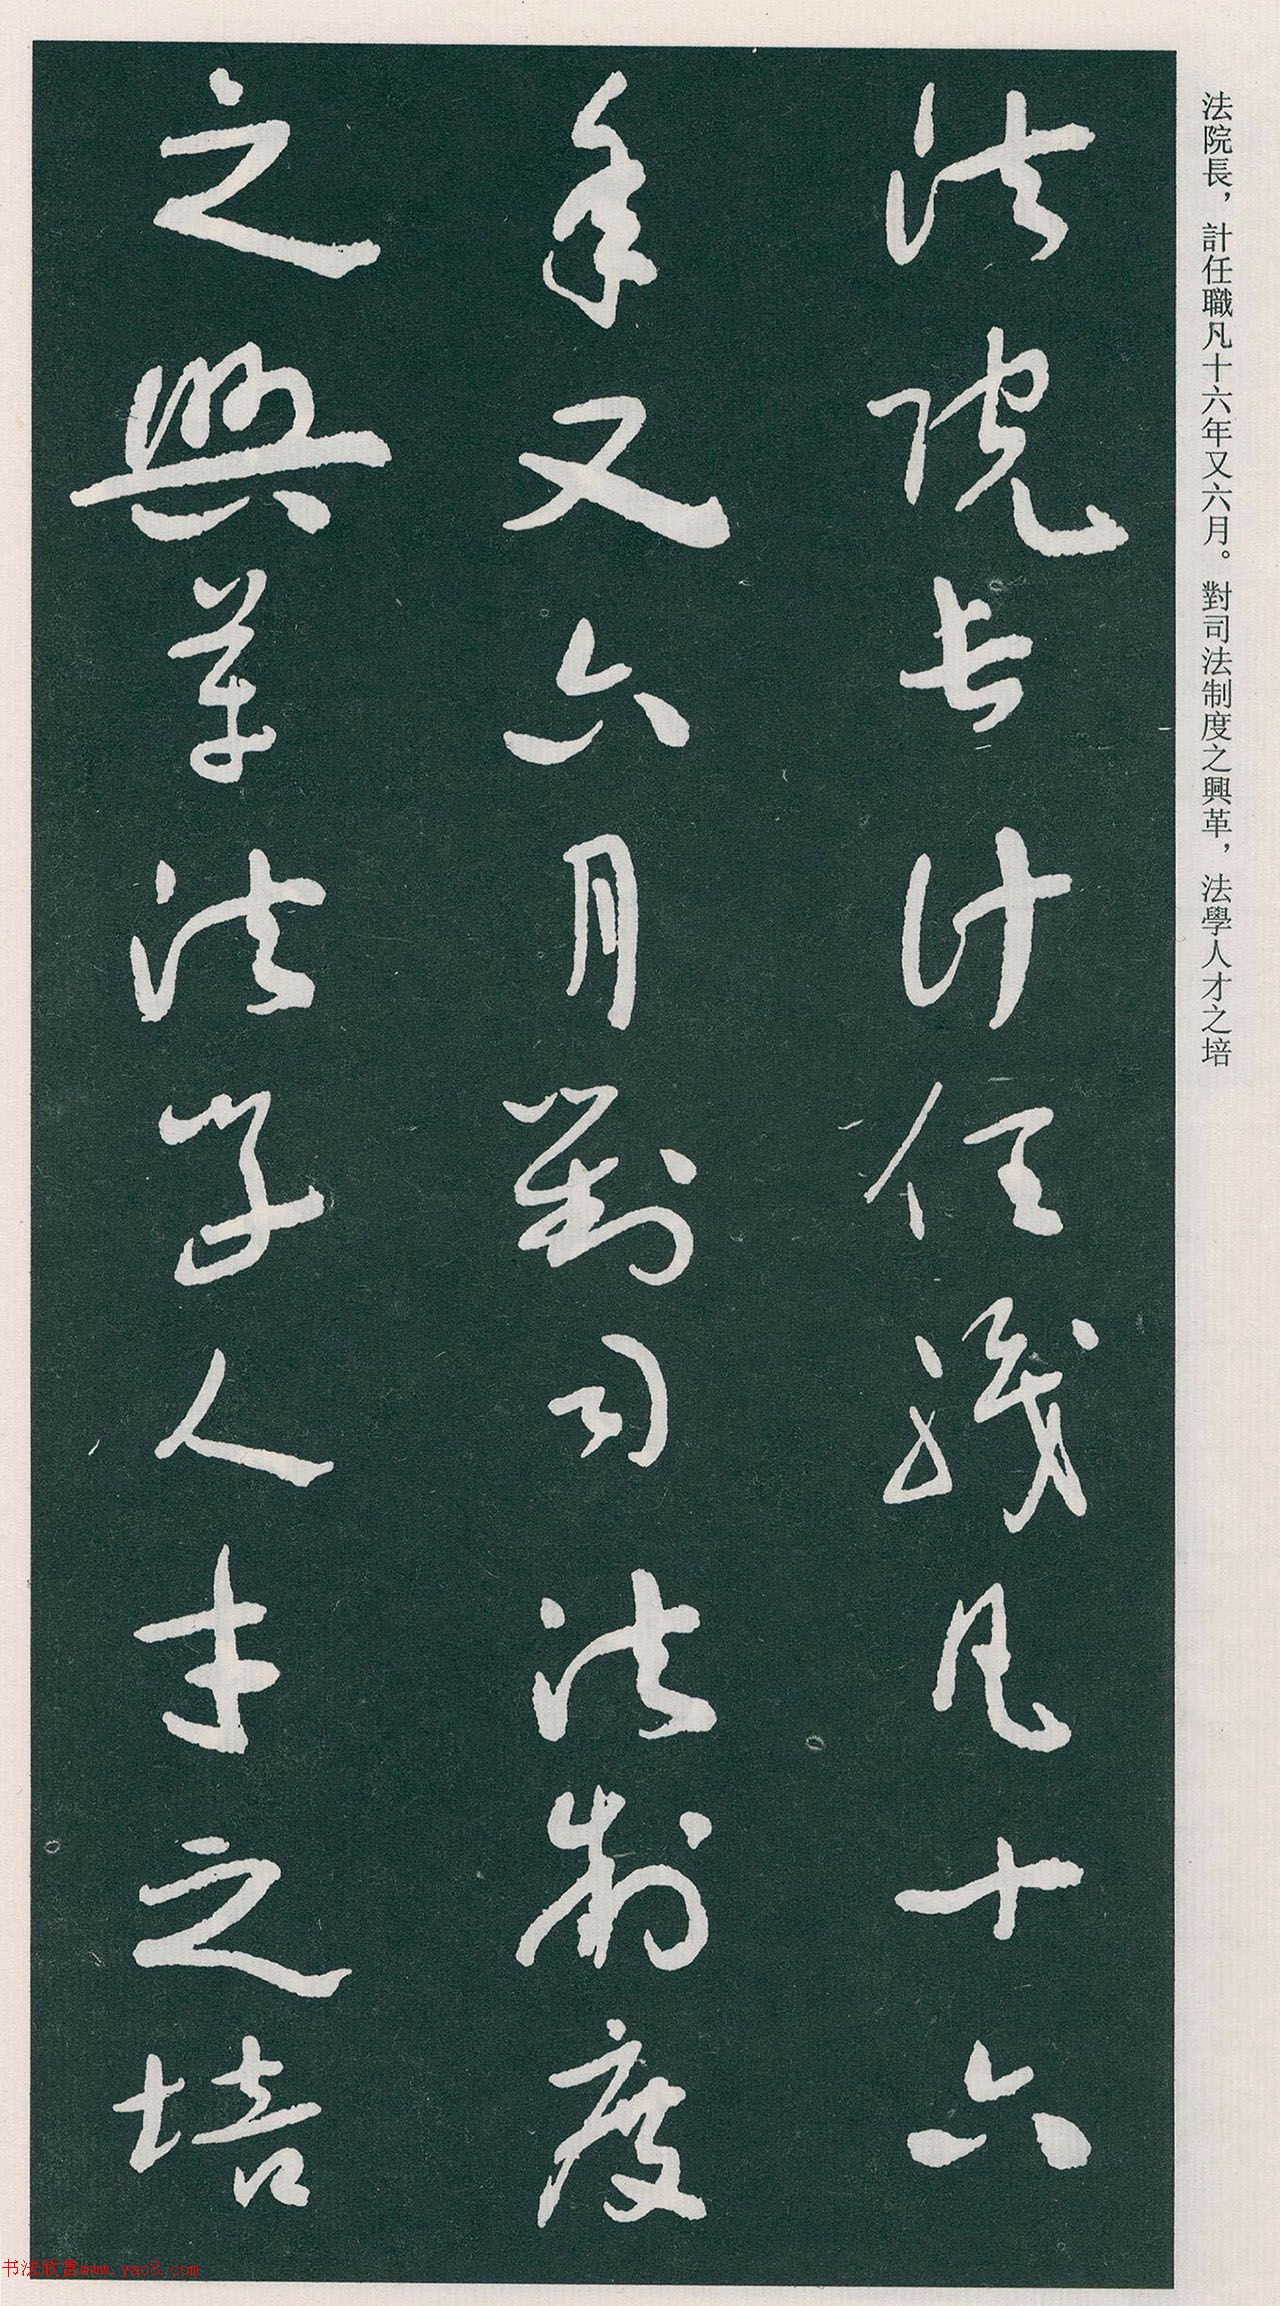 法院長，計任職凡十六年又六月。對司法制度之興革，法學人才之培
法院长计任職凡十六
年又六月對司法制度
之興革法学人才之培
书法欣赏www.yac8.com